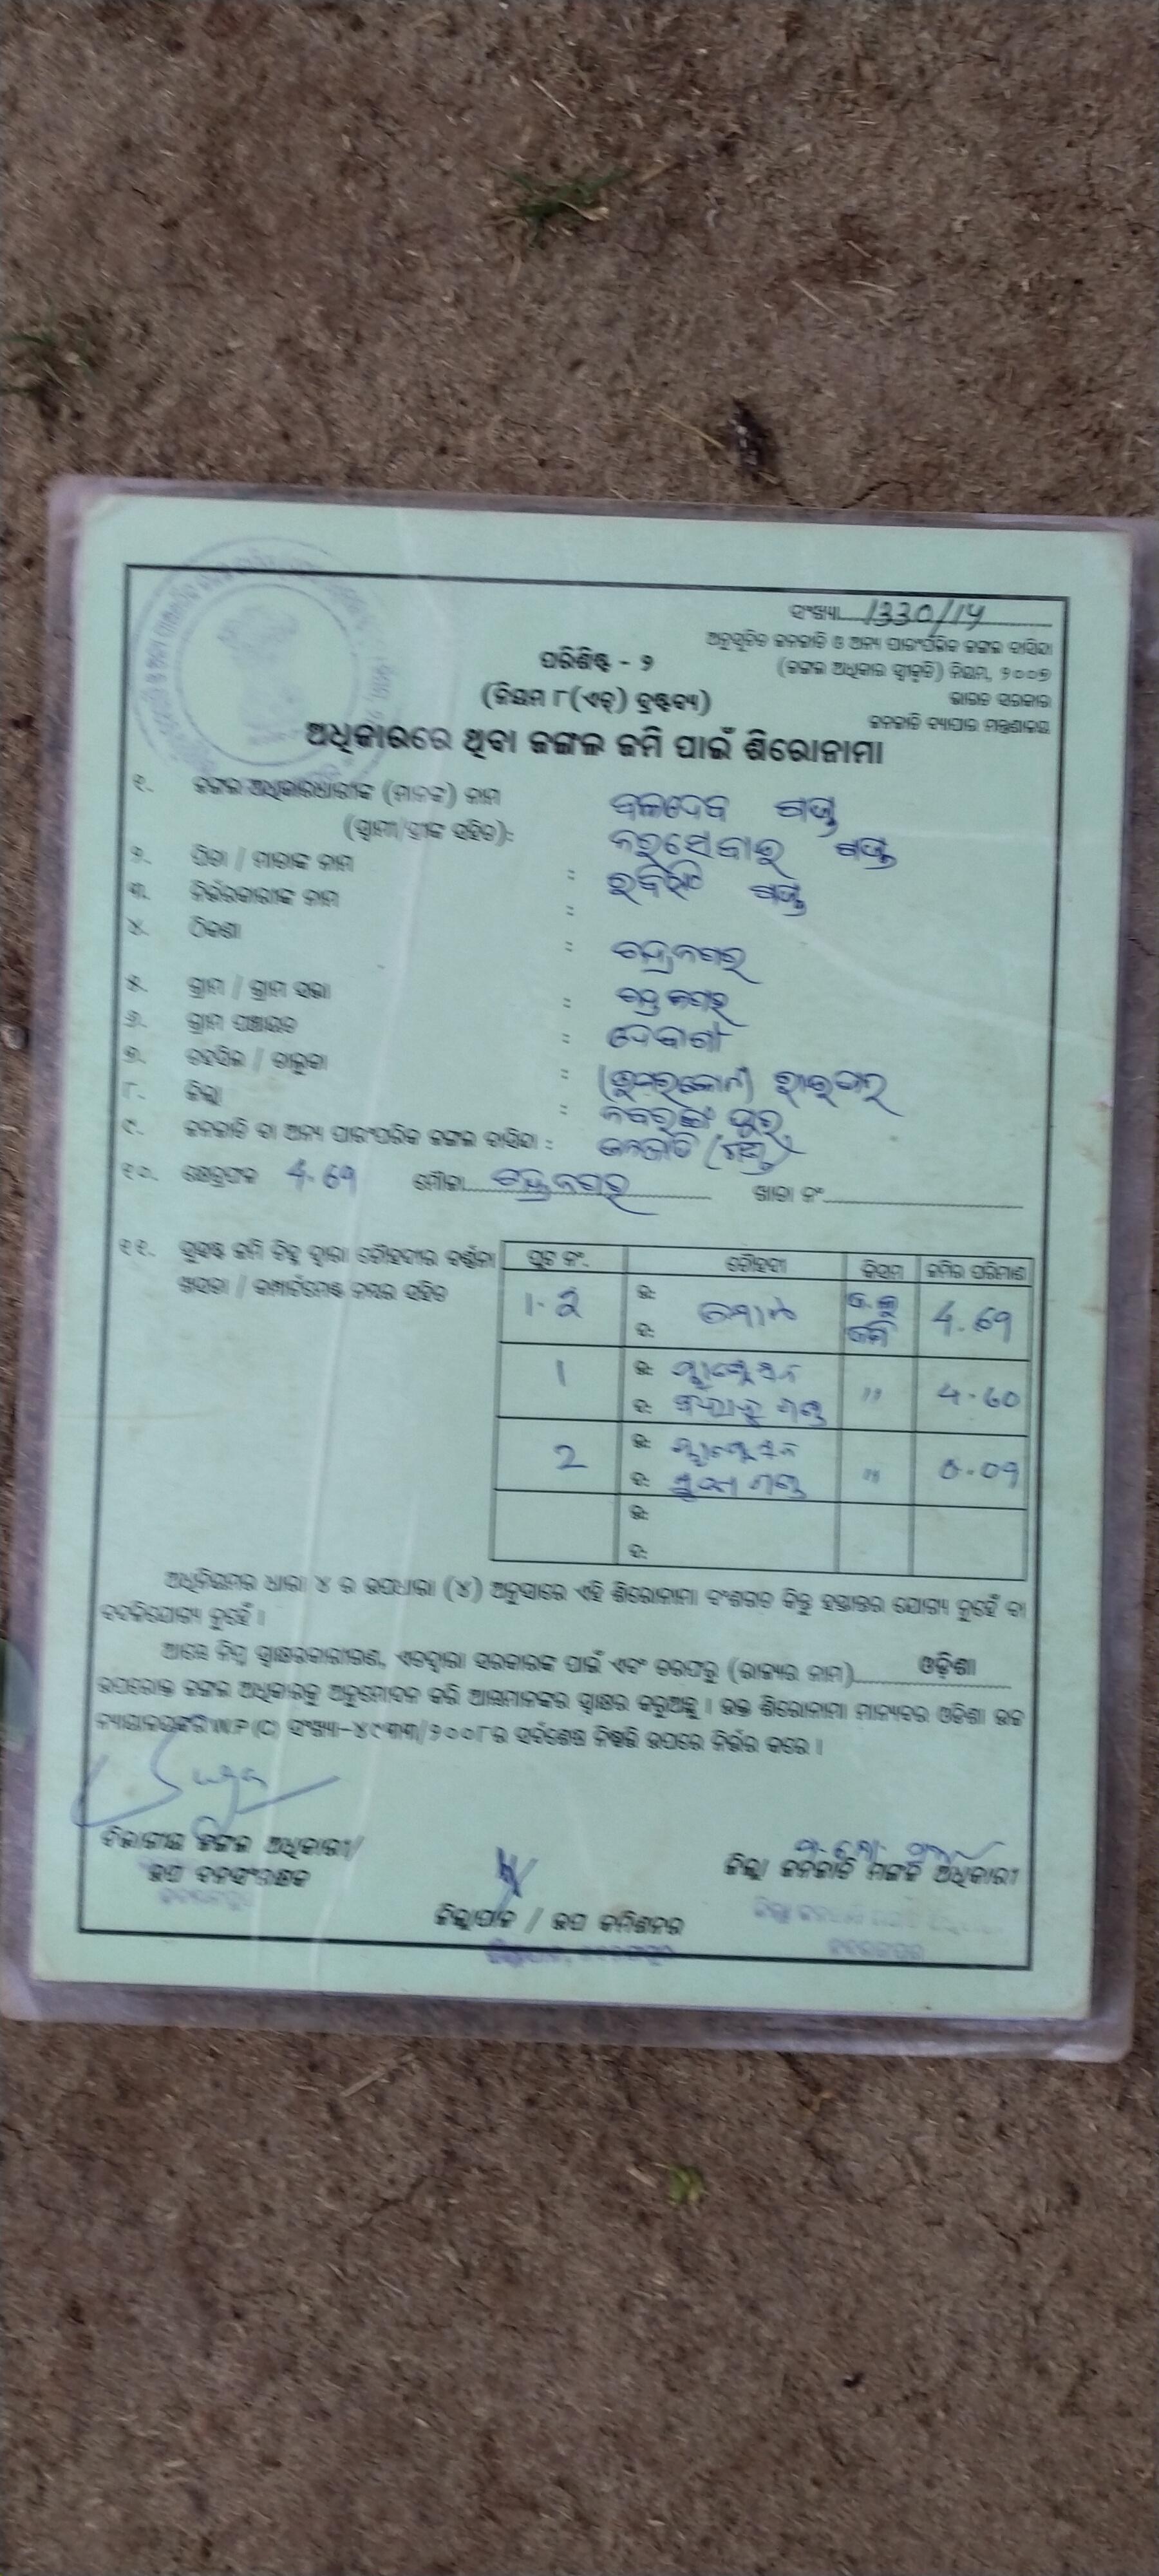 ସଂଖ୍ୟା 1330/14
ଅନୁସୂଚିତ ଜନଜାତି ଓ ଅନ୍ୟ ପାରଂପରିକ ଜଙ୍ଗଲ ବାସିନ୍ଦା
(ଜଙ୍ଗଲ ଅଧିକାର ସ୍ୱୀକୃତି) ନିୟମ, ୨୦୦୭
ଭାରତ ସରକାର
ଜନଜାତି ବ୍ୟାପାର ମନ୍ତ୍ରଣାଳୟ
ପରିଶିଷ୍ଟ - ୨
(ନିୟମ ୮(ଏଚ୍) ଦ୍ରଷ୍ଟବ୍ୟ)
ଅଧିକାରରେ ଥିବା ଜଙ୍ଗଲ ଜମି ପାଇଁ ଶିରୋନାମା
୧. ଜଙ୍ଗଲ ଅଧିକାରଧାରୀଙ୍କ (ମାନଙ୍କ) ନାମ ବଳଦେବ ଗଣ୍ଡ
(ସ୍ୱାମୀ/ସ୍ତ୍ରୀଙ୍କ ସହିତ):
୨. ପିତା / ମାତାଙ୍କ ନାମ : ରବିସିଂ ଗଣ୍ଡ
୩. ନିର୍ଭରକାରୀଙ୍କ ନାମ :
୪. ଠିକଣା : ଚନ୍ଦ୍ରନଗର
୫. ଗ୍ରାମ / ଗ୍ରାମ ସଭା : ଚନ୍ଦ୍ରନଗର
୬. ଗ୍ରାମ ପଞ୍ଚାୟତ :
୭. ତହସିଲ / ତାଲୁକା : ରାଇଘର
୮. ଜିଲ୍ଲା : ନବରଙ୍ଗପୁର
୯. ଜନଜାତି ବା ଅନ୍ୟ ପାରଂପରିକ ଜଙ୍ଗଲ ବାସିନ୍ଦା : ଜନଜାତି (ଗଣ୍ଡ)
୧୦. କ୍ଷେତ୍ରଫଳ 4.69 ମୌଜା ଚନ୍ଦ୍ରନଗର ଖାତା ନଂ
୧୧. ସୁସ୍ପଷ୍ଟ ଜମି ଚିହ୍ନ ଦ୍ୱାରା ଚୌହଦୀର ବର୍ଣ୍ଣନା
ଖସରା / କମ୍ପାର୍ଟମେଣ୍ଟ ନମ୍ବର ସହିତ
ପ୍ଲଟ ନଂ. ଚୌହଦୀ କିସମ ଜମିର ପରିମାଣ
1-2 ଉ: ଦ: 4.69
1 ଉ: ଦ: " 4.60
2 ଉ: ଦ: " 0.09
ଉ:
ଦ:
ଅଧିନିୟମର ଧାରା ୪ ର ଉପଧାରା (୪) ଅନୁସାରେ ଏହି ଶିରୋନାମା ବଂଶଗତ କିନ୍ତୁ ହସ୍ତାନ୍ତର ଯୋଗ୍ୟ ନୁହେଁ ବା
ବଦଳିଯୋଗ୍ୟ ନୁହେଁ ।
ଆମେ ନିମ୍ନ ସ୍ୱାକ୍ଷରକାରୀଗଣ, ଏତଦ୍ୱାରା ସରକାରଙ୍କ ପାଇଁ ଏବଂ ତରଫରୁ (ରାଜ୍ୟର ନାମ) ଓଡ଼ିଶା
ଉପରୋକ୍ତ ଜଙ୍ଗଲ ଅଧିକାରକୁ ଅନୁମୋଦନ କରି ଆମ୍ଭମାନଙ୍କର ସ୍ୱାକ୍ଷର କରୁଅଛୁ । ଉକ୍ତ ଶିରୋନାମା ମାନ୍ୟବର ଓଡ଼ିଶା ଉଚ୍ଚ
ନ୍ୟାୟାଳୟଙ୍କରି W.P (C) ସଂଖ୍ୟା-୪୯୩୩/୨୦୦୮ର ସର୍ବଶେଷ ନିଷ୍ପତ୍ତି ଉପରେ ନିର୍ଭର କରେ ।
ବିଭାଗୀୟ ଜଙ୍ଗଲ ଅଧିକାରୀ/
ଉପ ବନସଂରକ୍ଷକ
ଜିଲ୍ଲାପାଳ / ଉପ କମିଶନର
ଜିଲ୍ଲା ଜନଜାତି ମଙ୍ଗଳ ଅଧିକାରୀ